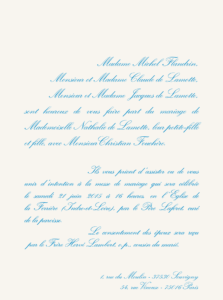 Madame Michel Flandrin,
Monsieur et Madame Claude de Lamotte,
Monsieur et Madame Jacques de Lamotte,
sont heureux de vous faire part du mariage de
Mademoiselle Nathalie de Lamotte, leur petite-fille
et fille, avec Monsieur Christian Fouchère.
Ils vous prient d'assister ou de vous
unir d'intention à la messe de mariage qui sera célébrée
le samedi 21 juin 2013 à 16 heures, en l'Église de
la (Indre-et-Loire), par le Père Lefort, curé
de la paroisse.
Le consentement des époux sera reçu
par le Père Hervé Lambert, cousin du marié.
rue du Moulin - 37320 Savigny
34, rue Vienne - 75016 Paris